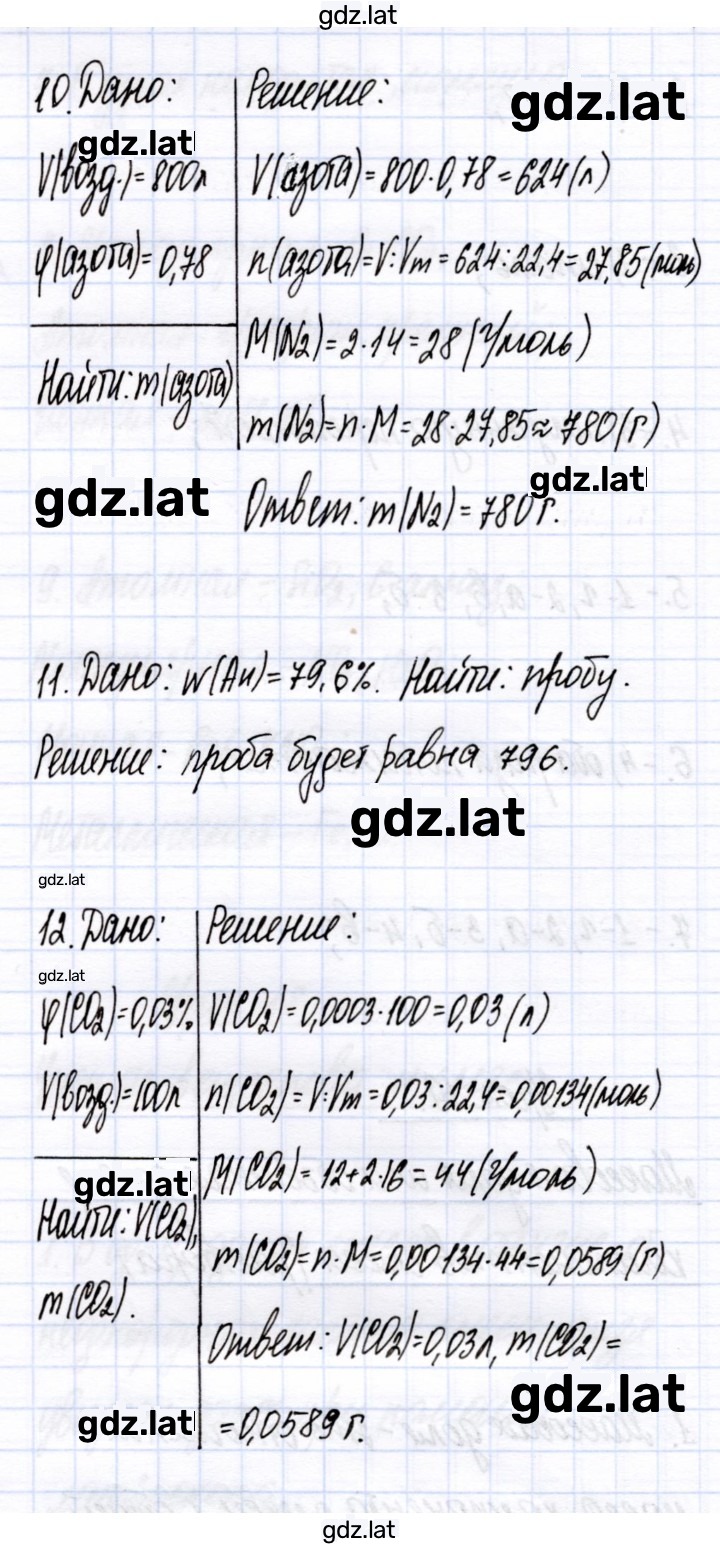 gdz.lat
10. Дано:
Решение:
gdz.lat
gdz.lat
V(возд.)=800л
V(азота)=800·0,78=624(л)
φ(азота)=0,78
n(азота)=V:Vm=624:22,4=27,85(моль)
M(N2)=2·14=28(г/моль)
Найти: m(азота)
m(N2)=n·M=28·27,85≈780(г)
gdz.lat
gdz.lat
Ответ: m(N2)=780г.
11. Дано: w(Au)=79,6%. Найти: пробу.
Решение: проба будет равна 796.
gdz.lat
gdz.lat
12. Дано:
Решение:
gdz.lat
φ(CO2)=0,03%
V(CO2)=0,0003·100=0,03(л)
V(возд.)=100л
n(CO2)=V:Vm=0,03:22,4=0,00134(моль)
M(CO2)=12+2·16=44(г/моль)
gdz.lat
Найти: V(CO2),
m(CO2).
m(CO2)=n·M=0,00134·44=0,0589(г)
Ответ: V(CO2)=0,03л, m(CO2)=
gdz.lat
gdz.lat
=0,0589г.
gdz.lat